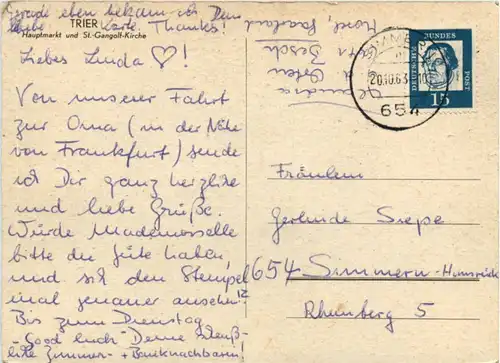 Gerade eben bekam ich Deine
liebe Karte. Thanks!
TRIER
Hauptmarkt und St.-Gangolf-Kirche
Liebes Linda ♡!
Von unserer Fahrt
zur Oma (in der Nähe
von Frankfurt) sende
ich Dir ganz herzliche
und liebe Grüße.
Würde Mademoiselle
bitte die Güte haben,
und sich den Stempel
mal genauer ansehen!
Bis zum Dienstag
- Good luck - Deine
Zimmer- + Banknachbarin!
Mosel, Saarland
DEUTSCHE BUNDESPOST
15
20.10.63
654
Fräulein
Gerlinde Siepe
654 Simmern-Hunsrück
Rhumberg 5